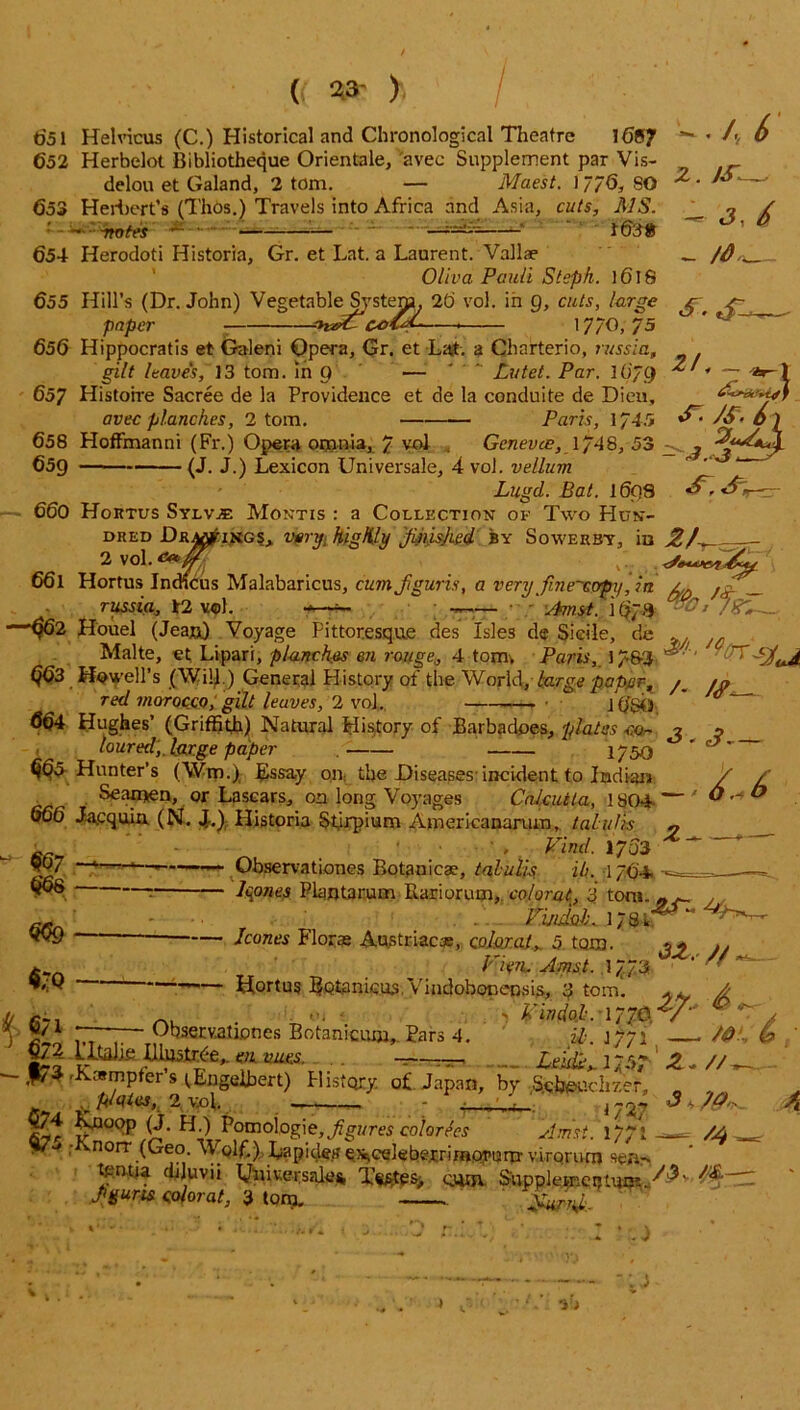 ( 23 )
651 Helvicus (C.) Historical and Chronological Theatre 1687 - . 1, 6
652 Herbelot Bibliotheque Orientale, avec Supplement par Vis-
delou et Galand, 2 tom. — Maest. 1776, 80 2. 15 —
653 Herbert's (Thos.) Travels into Africa and Asia, cuts, MS.
notes — 1638 - 3, 6
654 Herodoti Historia, Gr. et Lat. a Laurent. Vallæ
Oliva Pauli Steph. 1618 - 10 -
655 Hill's (Dr. John) Vegetable System, 26 vol. in 9, cuts, large 5. 5 —
paper — not col — 1770, 75
656 Hippocratis et Galeni Opera, Gr. et Lat. a Charterio, russia,
gilt leaves, 13 tom. in 9 — Lutet. Par. 1679 21. —
657 Histoire Sacrée de la Providence et de la conduite de Dieu,
avec planches, 2 tom. — Paris, 1745 5. 15. 6
658 Hoffmanni (Fr.) Opera omnia, 7 vol Genevæ, 1748, 53
659 — (J. J.) Lexicon Universale, 4 vol. vellum - . 3. 3
Lugd. Bat. 1698 5. 5 —
660 Hortus Sylvæ Montis : a Collection of Two Hun-
dred Drawings, very highly finished by Sowerby, in 21 —
2 vol.
661 Hortus Indicus Malabaricus, cum figuris, a very fine copy, in
russia, 12 vol. — — Amst. 1678
662 Houel (Jean) Voyage Pittoresque des Isles de Sicile, de
Malte, et Lipari, planches en rouge, 4 tom. Paris, 1782
663 Howell's (Will.) General History of the World, large paper, 1. 18 —
red morocco, gilt leaves, 2 vol. — 1680
664 Hughes' (Griffith) Natural History of Barbadoes, plates co- 3. 3 —
loured, large paper — — 1750
665 Hunter's (Wm.) Essay on the Diseases incident to Indian
Seamen, or Lascars, on long Voyages Calcutta, 1804 — 6. 6
666 Jacquin (N. J.) Historia Stirpium Americanarum, tabulis
Vind. 1763 2 — —
667 — Observationes Botanicæ, tabulis ib. 1764
668 — Icones Plantarum Rariorum, colorat, 3 tom.
Vindob. 1781
669 — Icones Floræ Austriacæ, colorat, 5 tom.
Vien. Amst. 1773 32. 11 —
670 — Hortus Botanicus Vindobonensis, 3 tom.
Vindob. 1770 27. 6 —
671 — Observationes Botanicum, Pars 4. ib. 1771 — 10. 6
672 L'Italie Illustrée, en vues. — Leide, 1757 2. 11 —
673 Kæmpfer's (Engelbert) History of Japan, by Scheuchzer,
plates, 2 vol. — — 1727 3. 10.
674 Knoop (J. H.) Pomologie, figures colorées Amst. 1771 — 14 —
675 Knorr (Geo. Wolf.) Lapides ex celeberrimorum virorum sen-
tentia diluvii Universales Testes, cum Supplementum, 13. 14 —
figuris colorat, 3 tom. — Nurnb.